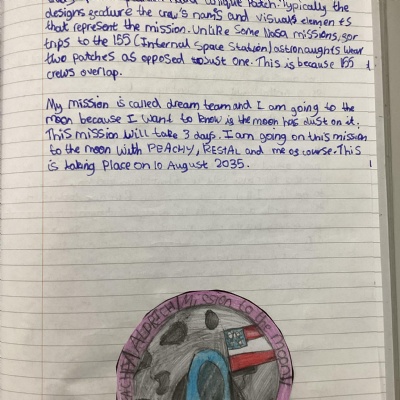 unique Patch. Typically the
designs feature the crew's names and visual elements
that represent the mission. Unlike Some Nasa missions, for
trips to the ISS (Internal Space Station) astronaughts wear
two patches as opposed to Just one. This is because ISS
crews overlap.
My mission is called dream team and I am going to the
moon because I want to know is the moon has dust on it.
This mission will take 3 days. I am going on this mission
to the moon with PEACHY, and me of course. This
is taking Place on 10 August 2035.
ALDRICH Mission to the moon